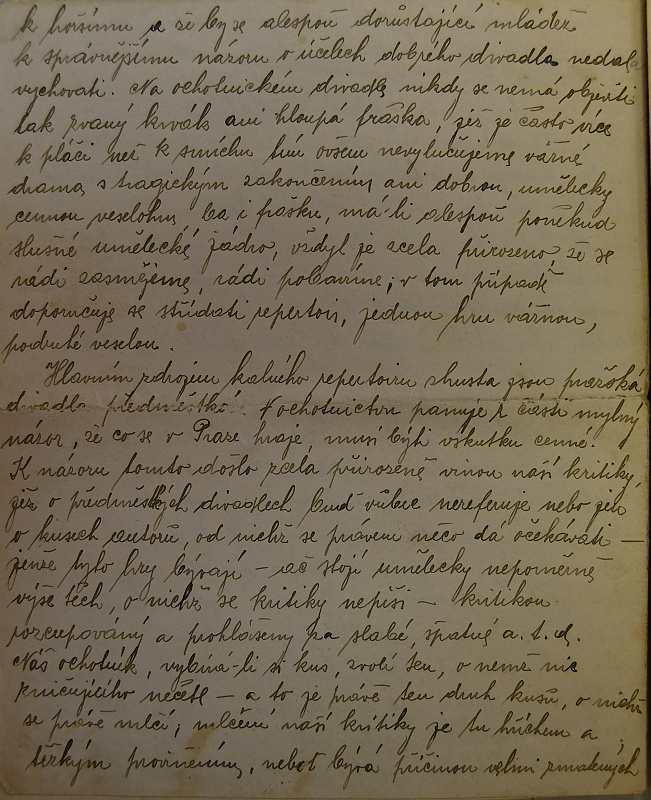 k horšímu a že by se alespoň dorůstající mládež
k správnějšímu názoru o účelech dobrého divadla nedala
vychovati. Na ochotnickém divadle nikdy se nemá objeviti
tak zvaný kvák ani hloupá fraška, jež je často více
k pláči než k smíchu tím ovšem nevylučujeme vážné
drama s tragickým zakončením ani dobrou, umělecky
cennou veselohru, ba i frašku, má-li alespoň poněkud
slušné umělecké jádro, vždyť je zcela přirozeno, že se
rádi zasmějeme, rádi pobavíme; v tom případě
doporučuje se střídati repertoir, jednou hru vážnou,
podruhé veselou.
Hlavním zdrojem kalného repertoiru zhusta jsou pražská
divadla předměstská. V ochotnictvu panuje z části mylný
názor, že co se v Praze hraje, musí býti vskutku cenné.
K názoru tomuto došlo zcela přirozeně vinou naší kritiky,
jež o předměstských divadlech buď vůbec nereferuje nebo jen
o kusech autorů, od nichž se právem něco dá očekávati —
jenže tyto hry bývají — ač stojí umělecky nepoměrně
výše těch, o nichž se kritiky nepíší — kritikou
rozcupovány a prohlášeny za slabé, špatné a. t. d.
Náš ochotník, vybírá-li si kus, zvolí ten, o němž nic
zničujícího nečetl — a to je právě ten druh kusů, o nichž
se právě mlčí; mlčení naší kritiky je tu hříchem a
těžkým proviněním, neboť bývá příčinou velmi zmatených